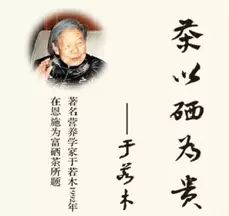 茶以硒为贵
——于若木
著名营养学家于若木1992年
在恩施为富硒茶所题